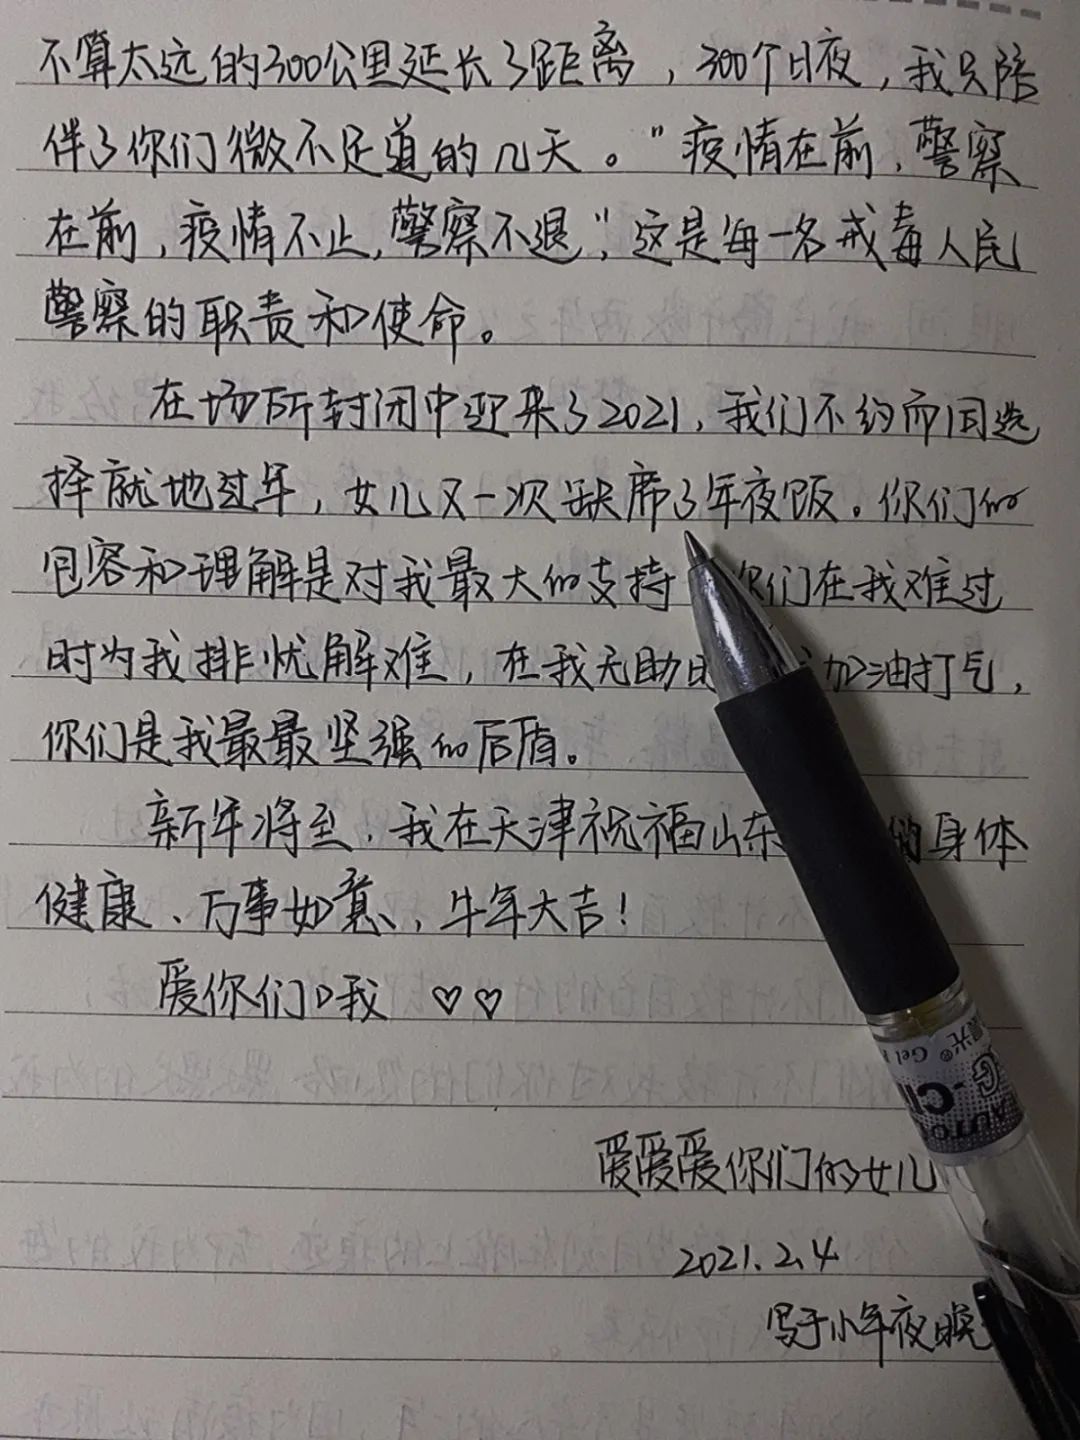 不算太远的300公里延长了距离，300个日夜，我只陪
伴了你们微不足道的几天。"疫情在前，警察
在前，疫情不止，警察不退"，这是每一名戒毒人民
警察的职责和使命。
在场所封闭中迎来了2021，我们不约而同选
择就地过年，女儿又一次缺席了年夜饭。你们的
包容和理解是对我最大的支持 你们在我难过
时为我排忧解难，在我无助 加油打气，
你们是我最最坚强的后盾。
新年将至，我在天津祝福山东 的身体
健康、万事如意、牛年大吉！
爱你们的我 ♡♡
爱爱爱你们的女儿
2021.2.4
写于小年夜晚
晨光® Gel
G
AUTO